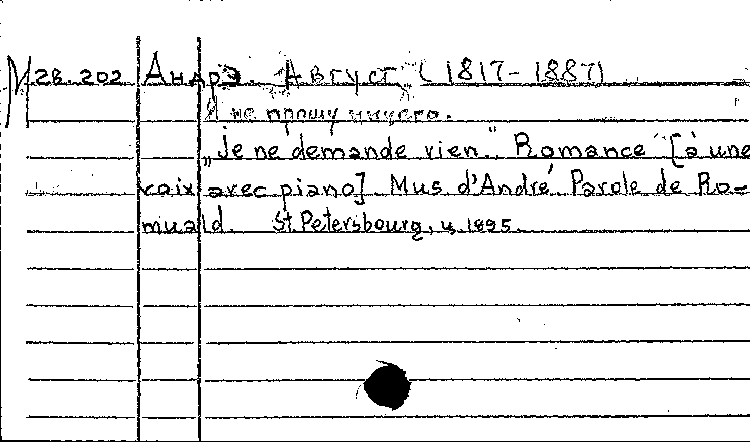 М 28.202 Андрэ. Август (1817-1887)
Я не прошу ничего.
„Je ne demande rien". Romance [à une
voix avec piano]. Mus d'André Parole de Ro-
muald. St. Petersbourg, 1895.